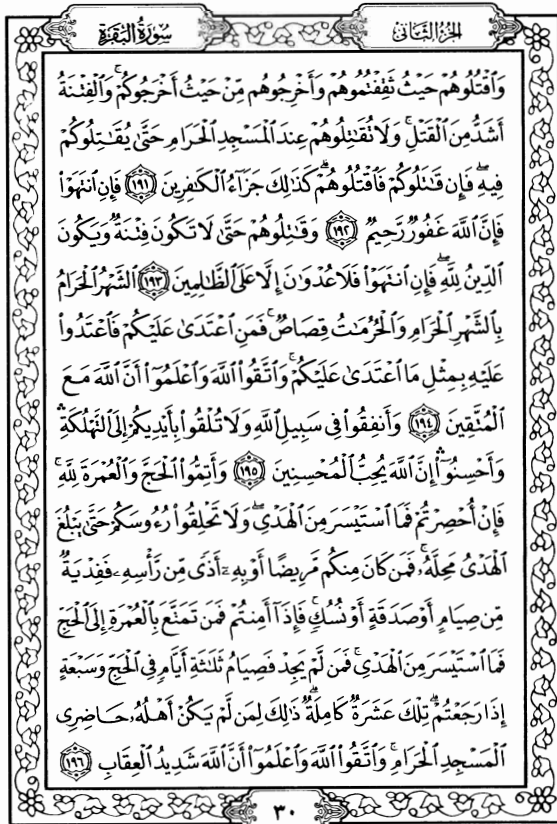 سُورَةُ البَقَرَةِ
الجُزْءُ الثَّانِي
وَٱقْتُلُوهُمْ حَيْثُ ثَقِفْتُمُوهُمْ وَأَخْرِجُوهُم مِّنْ حَيْثُ أَخْرَجُوكُمْ ۚ وَٱلْفِتْنَةُ
أَشَدُّ مِنَ ٱلْقَتْلِ ۚ وَلَا تُقَـٰتِلُوهُمْ عِندَ ٱلْمَسْجِدِ ٱلْحَرَامِ حَتَّىٰ يُقَـٰتِلُوكُمْ
فِيهِ ۖ فَإِن قَـٰتَلُوكُمْ فَٱقْتُلُوهُمْ ۗ كَذَٰلِكَ جَزَآءُ ٱلْكَـٰفِرِينَ ١٩١ فَإِنِ ٱنتَهَوْا۟
فَإِنَّ ٱللَّهَ غَفُورٌ رَّحِيمٌ ١٩٢ وَقَـٰتِلُوهُمْ حَتَّىٰ لَا تَكُونَ فِتْنَةٌ وَيَكُونَ
ٱلدِّينُ لِلَّهِ ۖ فَإِنِ ٱنتَهَوْا۟ فَلَا عُدْوَٰنَ إِلَّا عَلَى ٱلظَّـٰلِمِينَ ١٩٣ ٱلشَّهْرُ ٱلْحَرَامُ
بِٱلشَّهْرِ ٱلْحَرَامِ وَٱلْحُرُمَـٰتُ قِصَاصٌ ۚ فَمَنِ ٱعْتَدَىٰ عَلَيْكُمْ فَٱعْتَدُوا۟
عَلَيْهِ بِمِثْلِ مَا ٱعْتَدَىٰ عَلَيْكُمْ ۚ وَٱتَّقُوا۟ ٱللَّهَ وَٱعْلَمُوٓا۟ أَنَّ ٱللَّهَ مَعَ
ٱلْمُتَّقِينَ ١٩٤ وَأَنفِقُوا۟ فِى سَبِيلِ ٱللَّهِ وَلَا تُلْقُوا۟ بِأَيْدِيكُمْ إِلَى ٱلتَّهْلُكَةِ ۛ
وَأَحْسِنُوٓا۟ ۛ إِنَّ ٱللَّهَ يُحِبُّ ٱلْمُحْسِنِينَ ١٩٥ وَأَتِمُّوا۟ ٱلْحَجَّ وَٱلْعُمْرَةَ لِلَّهِ ۚ
فَإِنْ أُحْصِرْتُمْ فَمَا ٱسْتَيْسَرَ مِنَ ٱلْهَدْىِ ۖ وَلَا تَحْلِقُوا۟ رُءُوسَكُمْ حَتَّىٰ يَبْلُغَ
ٱلْهَدْىُ مَحِلَّهُۥ ۚ فَمَن كَانَ مِنكُم مَّرِيضًا أَوْ بِهِۦٓ أَذًى مِّن رَّأْسِهِۦ فَفِدْيَةٌ
مِّن صِيَامٍ أَوْ صَدَقَةٍ أَوْ نُسُكٍ ۚ فَإِذَآ أَمِنتُمْ فَمَن تَمَتَّعَ بِٱلْعُمْرَةِ إِلَى ٱلْحَجِّ
فَمَا ٱسْتَيْسَرَ مِنَ ٱلْهَدْىِ ۚ فَمَن لَّمْ يَجِدْ فَصِيَامُ ثَلَـٰثَةِ أَيَّامٍ فِى ٱلْحَجِّ وَسَبْعَةٍ
إِذَا رَجَعْتُمْ ۗ تِلْكَ عَشَرَةٌ كَامِلَةٌ ۗ ذَٰلِكَ لِمَن لَّمْ يَكُنْ أَهْلُهُۥ حَاضِرِى
ٱلْمَسْجِدِ ٱلْحَرَامِ ۚ وَٱتَّقُوا۟ ٱللَّهَ وَٱعْلَمُوٓا۟ أَنَّ ٱللَّهَ شَدِيدُ ٱلْعِقَابِ ١٩٦
٣٠